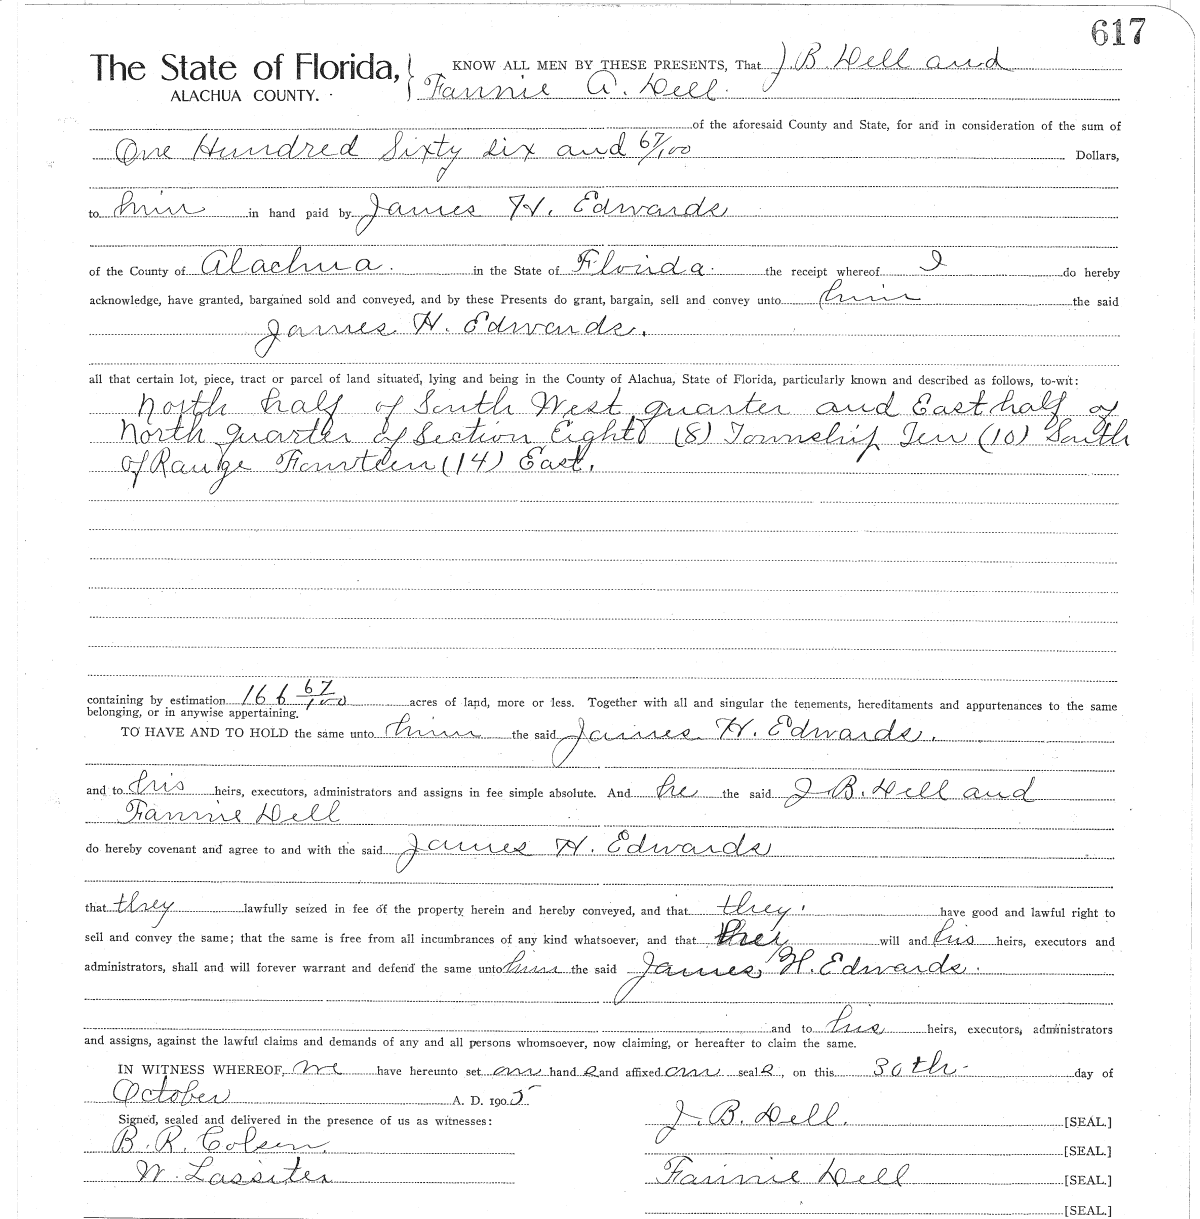 617
The State of Florida, } KNOW ALL MEN BY THESE PRESENTS, That J. B. Dell and
ALACHUA COUNTY. Fannie A. Dell.
of the aforesaid County and State, for and in consideration of the sum of
One Hundred Sixty six and 67/100 Dollars,
to him in hand paid by James H. Edwards
of the County of Alachua. in the State of Florida. the receipt whereof I do hereby
acknowledge, have granted, bargained sold and conveyed, and by these Presents do grant, bargain, sell and convey unto him the said
James H. Edwards.
all that certain lot, piece, tract or parcel of land situated, lying and being in the County of Alachua, State of Florida, particularly known and described as follows, to-wit:
North half of South West quarter and East half of
North quarter of Section Eight (8) Township Ten (10) South
of Range Fourteen (14) East.
containing by estimation 166 67/100 acres of land, more or less. Together with all and singular the tenements, hereditaments and appurtenances to the same
belonging, or in anywise appertaining.
TO HAVE AND TO HOLD the same unto him the said James H. Edwards.
and to his heirs, executors, administrators and assigns in fee simple absolute. And he the said J. B. Dell and
Fannie Dell
do hereby covenant and agree to and with the said James H. Edwards
that they lawfully seized in fee of the property herein and hereby conveyed, and that they. have good and lawful right to
sell and convey the same; that the same is free from all incumbrances of any kind whatsoever, and that will and his heirs, executors and
administrators, shall and will forever warrant and defend the same unto him the said James H. Edwards.
and to his heirs, executors, administrators
and assigns, against the lawful claims and demands of any and all persons whomsoever, now claiming, or hereafter to claim the same.
IN WITNESS WHEREOF, we have hereunto set our hand s and affixed our seal s, on this 30th day of
October A. D. 1905
Signed, sealed and delivered in the presence of us as witnesses: J. B. Dell. [SEAL.]
B. R. Colson. [SEAL.]
W. Lassiter Fannie Dell [SEAL.]
[SEAL.]